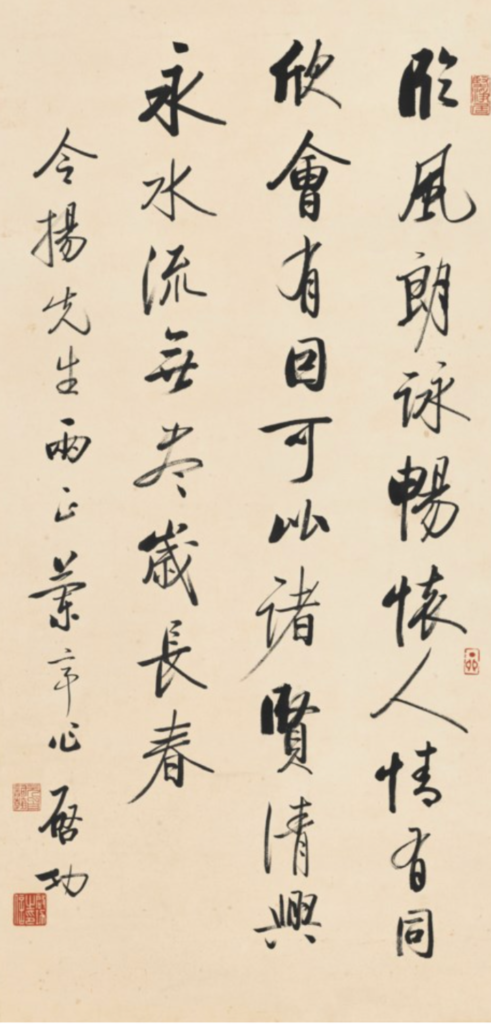 臨風朗詠暢懷人情有同
欣會有因可以諸賢清興
永水流無盡歲長春
令揚先生兩正 启功